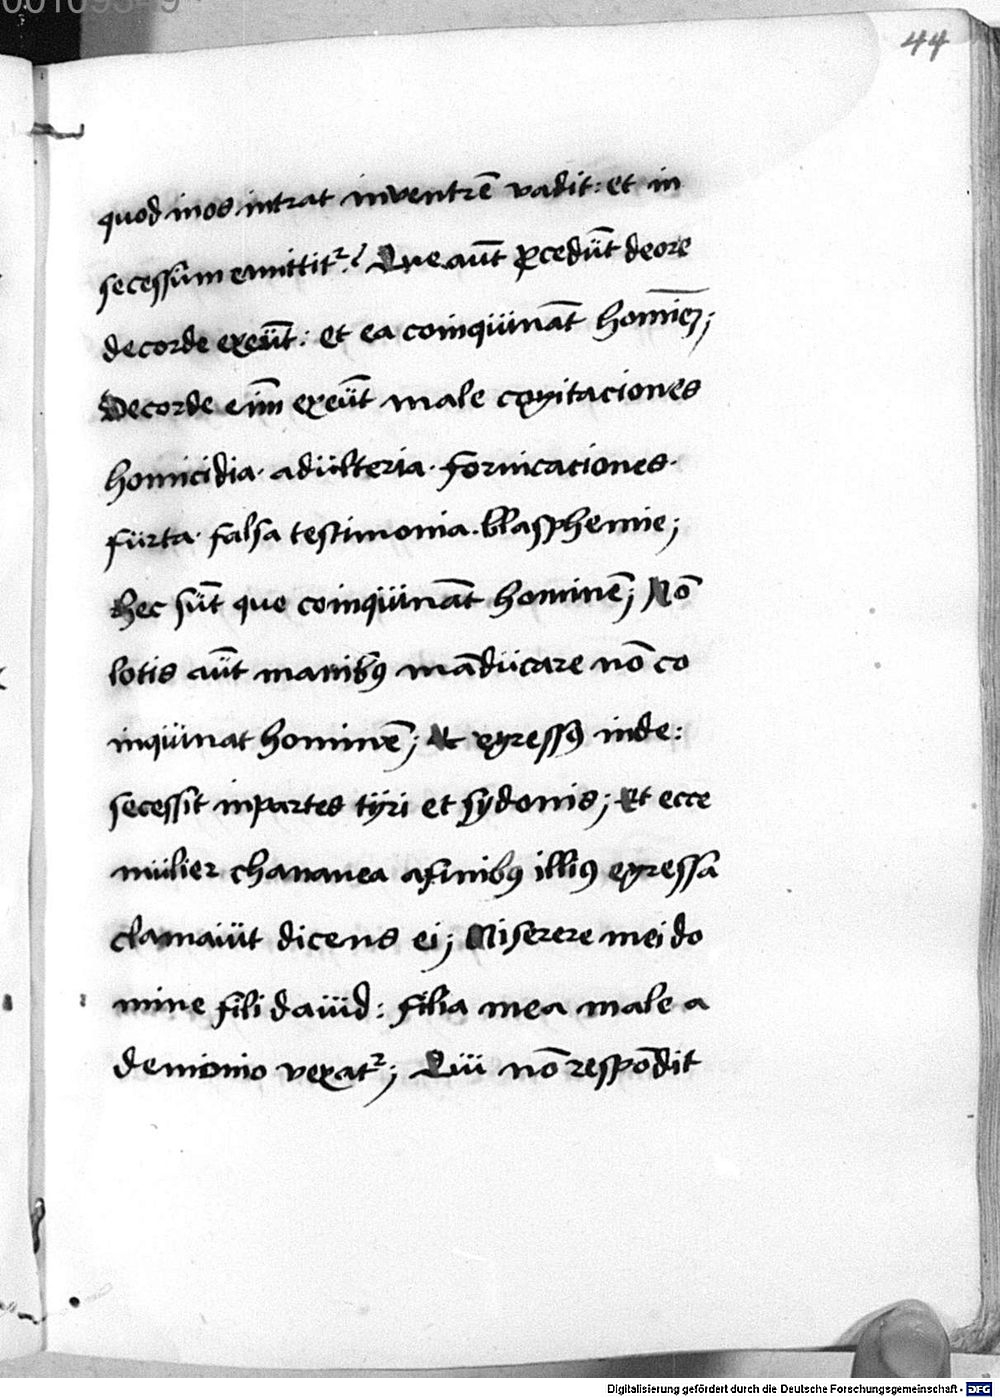 44
quod inos intrat inventrē vadit: et in
secessum emittit᷑? Que aūt ꝓcedūt deore
decorde exeūt: et ea coinquināt homīeʒ;
Decorde eīm exeūt male cogitaciones
homicidia· adülteria· fornicaciones·
fürta· falsa testimonia· blasphemie;
Hec sūt que coinquināt hominē; Nō
lotis aūt manibꝯ māducare nō co
inquinat hominē; Et egressꝯ inde:
secessit inpartes tÿri et sÿdonis; Et ecce
mülier chananea afinibꝯ illiꝯ egressa
clamauit dicens ei; Miserere mei do
mine fili dauid: filia mea male a
demonio vexat᷑; Qui nō respōdit
Digitalisierung gefördert durch die Deutsche Forschungsgemeinschaft - DFG